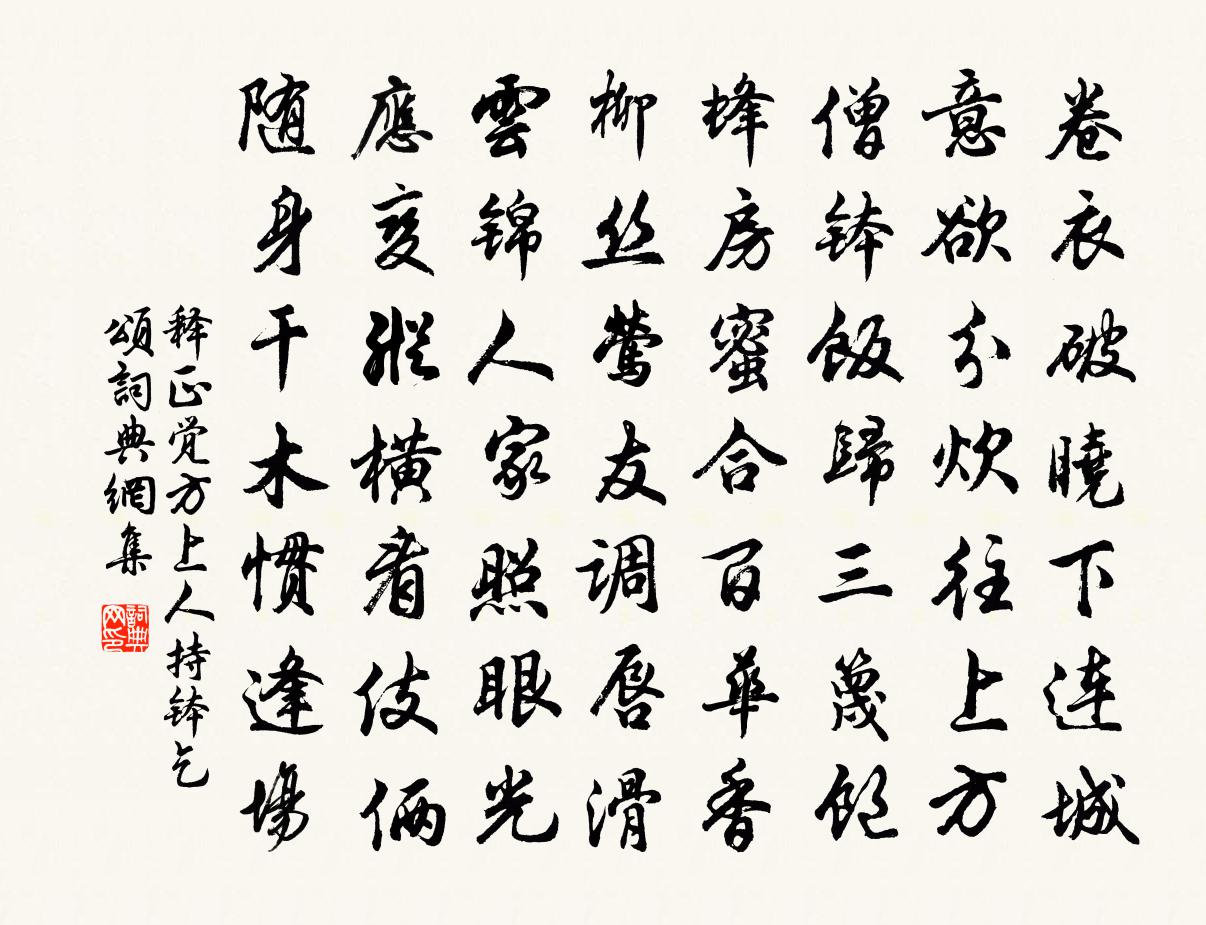 卷衣破曉下連城
意欲分炊往上方
僧钵飯歸三篾飽
蜂房蜜合百華香
柳丝鶯友调唇滑
雲锦人家照眼光
應变縱橫看伎倆
随身干木慣逢場
释正觉方上人持钵乞
頌詞典網集
詞典网印